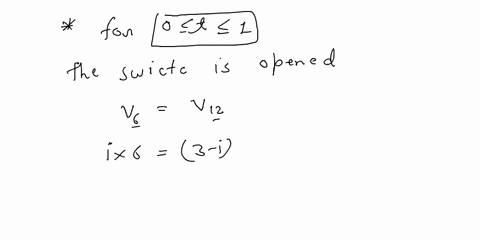 * for 0 ≤ t ≤ 1
the swictc is opened
V6 = V12
i × 6 = (3-i)